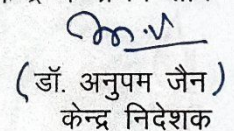 ( डॉ. अनुपम जैन )
केन्द्र निदेशक